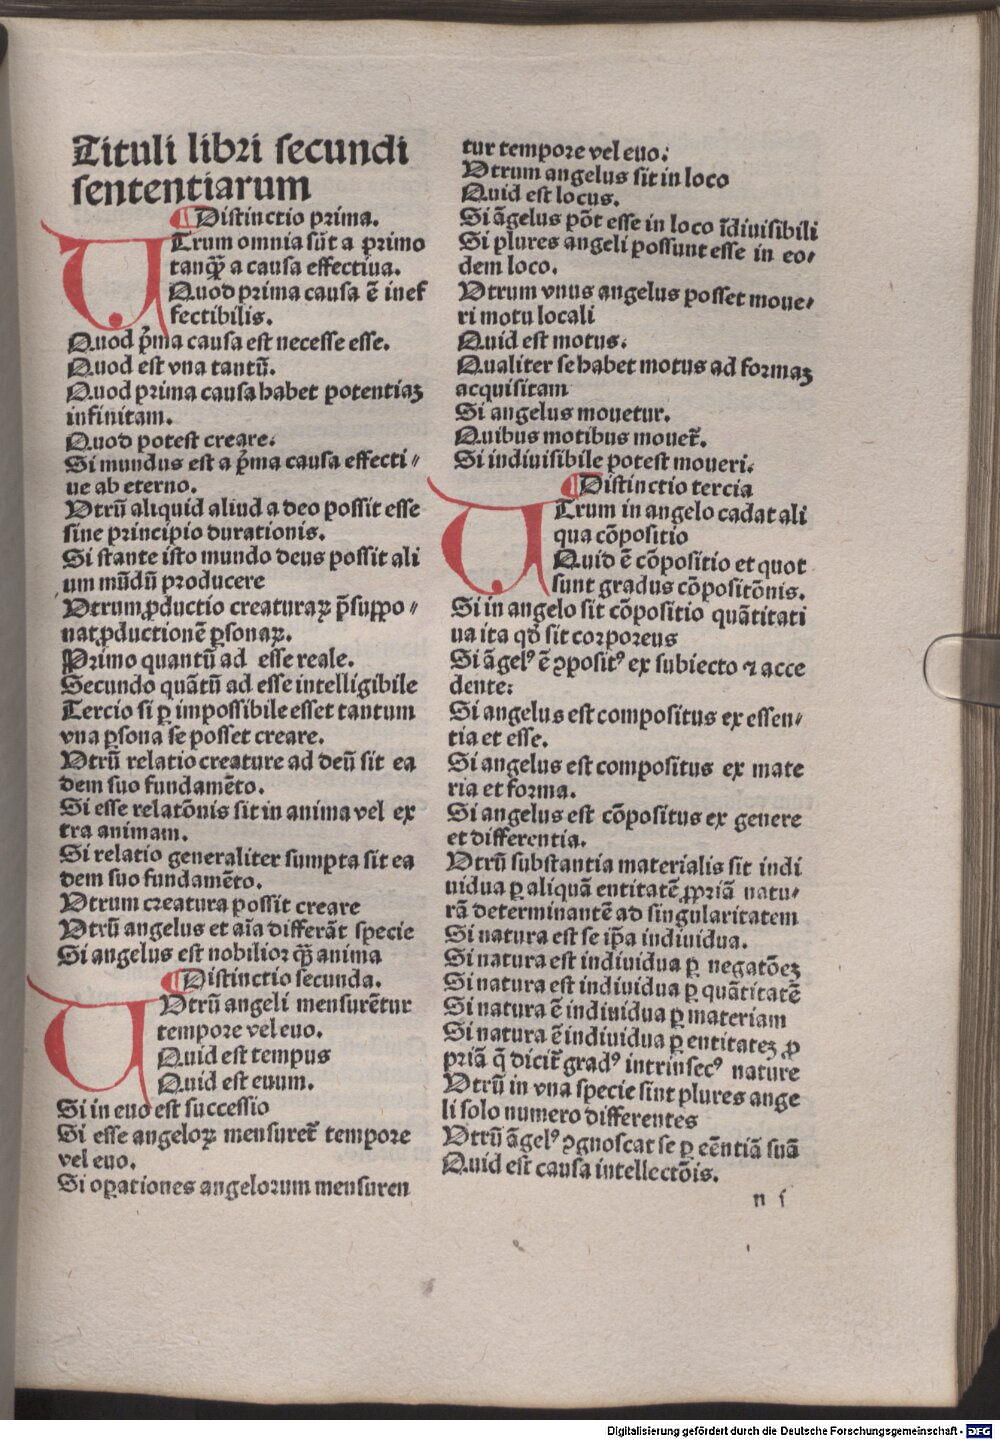 Tituli libri secundi
sententiarum
¶ Distinctio prima.
UTrum omnia sūt a primo
tanqȝ̄ a causa effectiua.
Quod prima causa ē inef
fectibilis.
Quod p̄ma causa est necesse esse.
Quod est vna tantū.
Quod prima causa habet potentiaȝ
infinitam.
Quod potest creare.
Si mundus est a p̄ma causa effecti⸗
ue ab eterno.
Vtrū aliquid aliud a deo possit esse
sine principio durationis.
Si stante isto mundo deus possit ali
um mūdū producere
Vtrum ꝓductio creaturaꝝ p̄suppo⸗
nat ꝓductionē ꝑsonaꝝ.
Primo quantū ad esse reale.
Secundo quātū ad esse intelligibile
Tercio si ꝑ impossibile esset tantum
vna ꝑsona se posset creare.
Vtrū relatio creature ad deū sit ea
dem suo fundamēto.
Si esse relatōnis sit in anima vel ex
tra animam.
Si relatio generaliter sumpta sit ea
dem suo fundamēto.
Vtrum creatura possit creare
Vtrū angelus et aīa differāt specie
Si angelus est nobilior qȝ̄ anima
¶ Distinctio secunda.
UVtrū angeli mensurētur
tempore vel euo.
Quid est tempus
Quid est euum.
Si in euo est successio
Si esse angeloꝝ mensuret᷑ tempore
vel euo.
Si oꝑationes angelorum mensuren
tur tempore vel euo.
Vtrum angelus sit in loco
Quid est locus.
Si āgelus pōt esse in loco īdiuisibili
Si plures angeli possunt esse in eo⸗
dem loco.
Vtrum vnus angelus posset moue⸗
ri motu locali
Quid est motus.
Qualiter se habet motus ad formaȝ
acquisitam
Si angelus mouetur.
Quibus motibus mouet᷑.
Si indiuisibile potest moueri.
¶ Distinctio tercia
UTrum in angelo cadat ali
qua cōpositio
Quid ē cōpositio et quot
sunt gradus cōpositōnis.
Si in angelo sit cōpositio quātitati
ua ita qđ sit corporeus
Si āgelꝰ ē ↄpositꝰ ex subiecto ⁊ acce
dente:
Si angelus est compositus ex essen⸗
tia et esse.
Si angelus est compositus ex mate
ria et forma.
Si angelus est cōpositus ex genere
et differentia.
Vtrū substantia materialis sit indi
uidua ꝑ aliquā entitatē ꝓpriā natu⸗
rā determinantē ad singularitatem
Si natura est se ip̄a indiuidua.
Si natura est indiuidua ꝑ negatōeȝ
Si natura est indiuidua ꝑ quātitatē
Si natura ē indiuidua ꝑ materiam
Si natura ē indiuidua ꝑ entitateȝ ꝓ
priā q̄ dicit᷑ gradꝰ intrinsecꝰ nature
Vtrū in vna specie sint plures ange
li solo numero differentes
Vtrū āgelꝰ ↄgnoscat se ꝑ eētiā suā
Quid est causa intellectōis.
n i
Digitalisierung gefördert durch die Deutsche Forschungsgemeinschaft - DFG